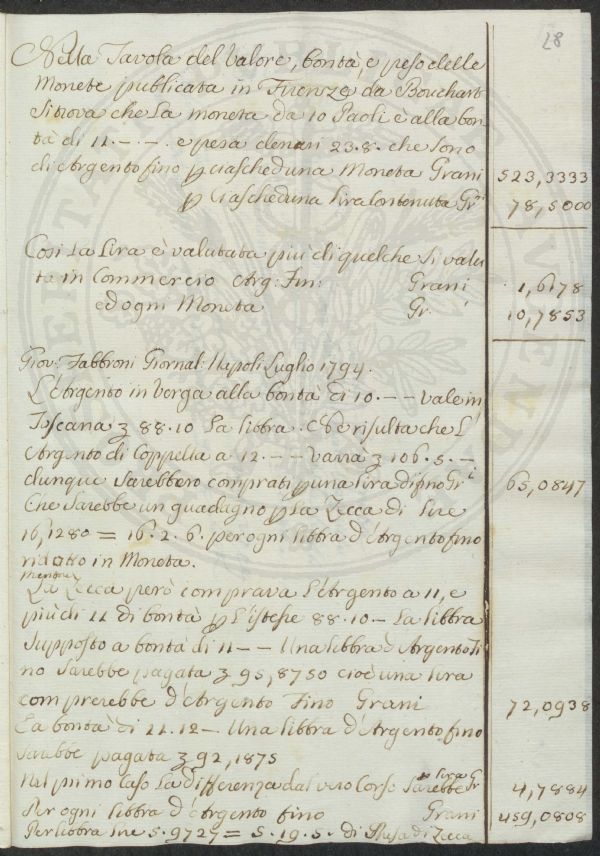 28
Nella Tavola del Valore, bontà, e peso delle
Monete publicata in Firenze da Bouchard
Si trova che La moneta da 10 Paoli è alla bon-
tà di 11.-.-. e pesa denari 23.8. che sono
di Argento fino p ciascheduna Moneta Grani 523,3333
p Ciascheduna Lira Contenuta Gr.ni 78,5000
Così La Lira è valutata più di quel che si valu
ta in Commercio Arg: Fin: Grani 1,6178
ed ogni Moneta Gr. 10,7853
Giov: Fabbroni Giornal: Napoli Luglio 1794.
L'Argento in Verga alla bontà di 10.-- vale in
Toscana 88.10 La libbra. Ne risulta che L'
Argento di Coppella a 12.-- varrà 106.5.-
dunque Sarebbero comprati p una lira di fino Gr.i 65,0847
Che Sarebbe un guadagno p La Zecca di Lire
16,1280 = 16.2.6. per ogni libbra d'Argento fino
ridotto in Moneta.
mentre
La Zecca però comprava L'Argento a 11, e
più di 11 di bontà p L'istesse 88.10- La libbra
Supposto a bontà di 11-- Una libbra d'Argento Fi
no Sarebbe pagata 95,8750 cioè una lira
comprerebbe d'Argento Fino Grani 72,0938
La bontà di 11.12- Una libbra d'Argento fino
Sarebbe pagata 92,1875
Nel primo Caso La differenza dal vero Corso Sarebbe p lira Gr 4,7884
Per ogni libbra d'Argento fino Grani 459,0808
Per libbra Lire 5.9727 = 5.19.5. di Spesa di Zecca